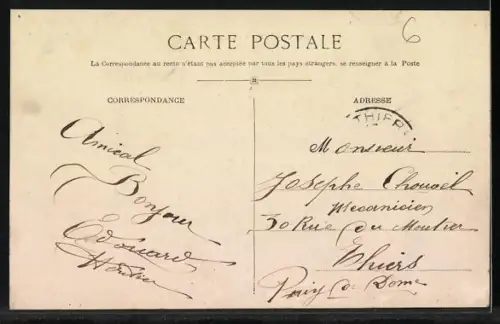 6
CARTE POSTALE
La Correspondance au recto n'étant pas acceptée par tous les pays étrangers, se renseigner à la Poste
CORRESPONDANCE
ADRESSE
THIERS
Amical
Bonjour
Edouard
Monsieur
Josephe Chouvel
Mecanicien
30 Rue du Moutier
Thiers
Puy de Dome